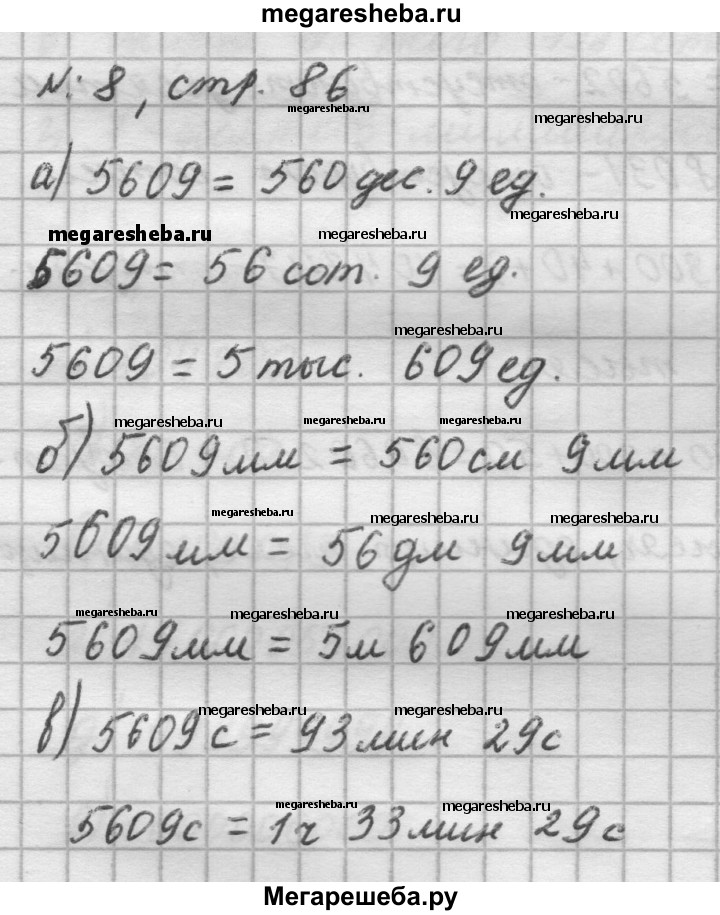 megaresheba.ru
N: 8, стр. 86
megaresheba.ru
megaresheba.ru
а) 5609 = 560 дес. 9 ед.
megaresheba.ru
megaresheba.ru megaresheba.ru
5609 = 56 сот. 9 ед.
megaresheba.ru
5609 = 5 тыс. 609 ед.
megaresheba.ru megaresheba.ru megaresheba.ru
б) 5609 мм = 560 см 9 мм
megaresheba.ru megaresheba.ru megaresheba.ru
5609 мм = 56 дм 9 мм
megaresheba.ru megaresheba.ru megaresheba.ru
5609 мм = 5 м 609 мм
megaresheba.ru megaresheba.ru
в) 5609 с = 93 мин 29 с
megaresheba.ru megaresheba.ru
5609 с = 1 ч 33 мин 29 с
Мегарешеба.ру